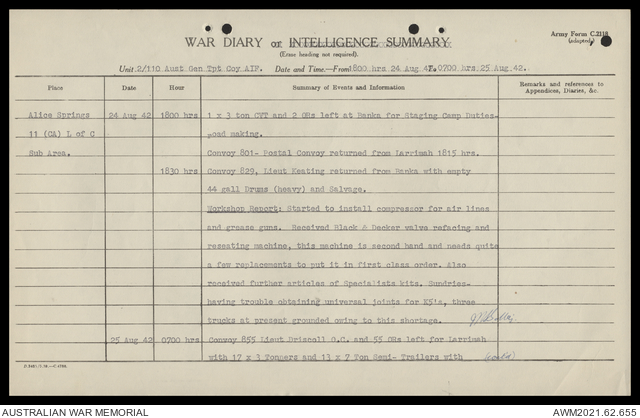 WAR DIARY or INTELLIGENCE SUMMARY.
(Erase heading not required).
Army Form C.2118
(adapted)
Unit 2/110 Aust Gen Tpt Coy AIF. Date and Time—From 1800 hrs 24 Aug 42 To 0700 hrs 25 Aug 42.
Place Date Hour Summary of Events and Information Remarks and references to Appendices, Diaries, &c.
Alice Springs 24 Aug 42 1800 hrs 1 x 3 ton CVT and 2 ORs left at Banka for Staging Camp Duties-
11 (CA) L of C road making.
Sub Area. Convoy 801- Postal Convoy returned from Larrimah 1815 hrs.
1830 hrs Convoy 829, Lieut Keating returned from Banka with empty
44 gall Drums (heavy) and Salvage.
Workshop Report: Started to install compressor for air lines
and grease guns. Received Black & Decker valve refacing and
reseating machine, this machine is second hand and needs quite
a few replacements to put it in first class order. Also
received further articles of Specialists kits. Sundries-
having trouble obtaining universal joints for K5's, three
trucks at present grounded owing to this shortage.
25 Aug 42 0700 hrs Convoy 855 Lieut Driscoll O.C. and 55 ORs left for Larrimah
with 17 x 3 Tonners and 13 x 7 Ton Semi-Trailers with (contd)
AUSTRALIAN WAR MEMORIAL
AWM2021.62.655